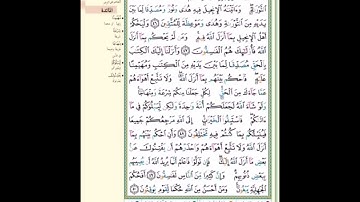 التَّوْرَىٰةِ وَءَاتَيْنَٰهُ الْإِنجِيلَ فِيهِ هُدًى وَنُورٌ وَمُصَدِّقًا لِّمَا بَيْنَ
يَدَيْهِ مِنَ التَّوْرَىٰةِ وَهُدًى وَمَوْعِظَةً لِّلْمُتَّقِينَ ۝ وَلْيَحْكُمْ
أَهْلُ الْإِنجِيلِ بِمَا أَنزَلَ اللَّهُ فِيهِ وَمَن لَّمْ يَحْكُم بِمَا أَنزَلَ
اللَّهُ فَأُولَٰئِكَ هُمُ الْفَٰسِقُونَ ۝ وَأَنزَلْنَا إِلَيْكَ الْكِتَٰبَ
بِالْحَقِّ مُصَدِّقًا لِّمَا بَيْنَ يَدَيْهِ مِنَ الْكِتَٰبِ وَمُهَيْمِنًا
عَلَيْهِ فَاحْكُم بَيْنَهُم بِمَا أَنزَلَ اللَّهُ وَلَا تَتَّبِعْ أَهْوَاءَهُمْ
عَمَّا جَاءَكَ مِنَ الْحَقِّ لِكُلٍّ جَعَلْنَا مِنكُمْ شِرْعَةً وَمِنْهَاجًا
وَلَوْ شَاءَ اللَّهُ لَجَعَلَكُمْ أُمَّةً وَٰحِدَةً وَلَٰكِن لِّيَبْلُوَكُمْ فِي
مَا ءَاتَىٰكُمْ فَاسْتَبِقُوا الْخَيْرَٰتِ إِلَى اللَّهِ مَرْجِعُكُمْ جَمِيعًا
فَيُنَبِّئُكُم بِمَا كُنتُمْ فِيهِ تَخْتَلِفُونَ ۝ وَأَنِ احْكُم بَيْنَهُم بِمَا
أَنزَلَ اللَّهُ وَلَا تَتَّبِعْ أَهْوَاءَهُمْ وَاحْذَرْهُمْ أَن يَفْتِنُوكَ عَن
بَعْضِ مَا أَنزَلَ اللَّهُ إِلَيْكَ فَإِن تَوَلَّوْا فَاعْلَمْ أَنَّمَا يُرِيدُ اللَّهُ أَن يُصِيبَهُم
بِبَعْضِ ذُنُوبِهِمْ وَإِنَّ كَثِيرًا مِّنَ النَّاسِ لَفَٰسِقُونَ ۝ أَفَحُكْمَ
الْجَٰهِلِيَّةِ يَبْغُونَ وَمَنْ أَحْسَنُ مِنَ اللَّهِ حُكْمًا لِّقَوْمٍ يُوقِنُونَ ۝